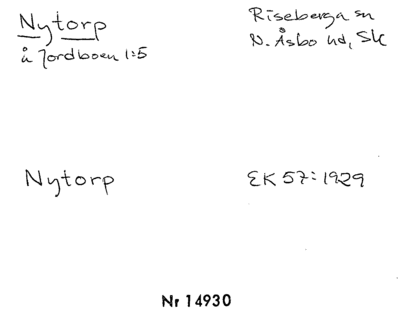 Nytorp
å Jordboen 1:5
Riseberga sn
N. Åsbo hd, Sk
Nytorp
EK 57:1929
Nr 14930